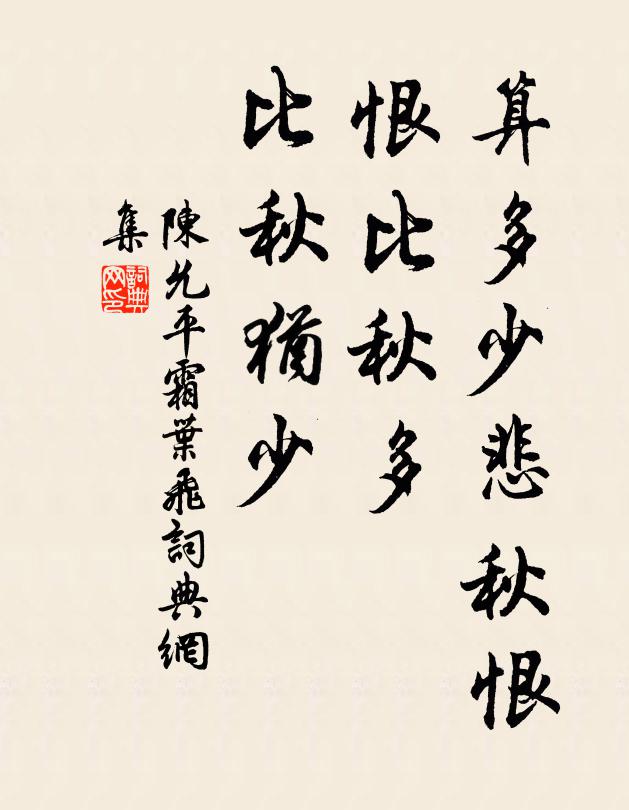 算多少悲秋恨
恨比秋多
比秋猶少
陳允平霜葉飛詞典網
集
詞典網印